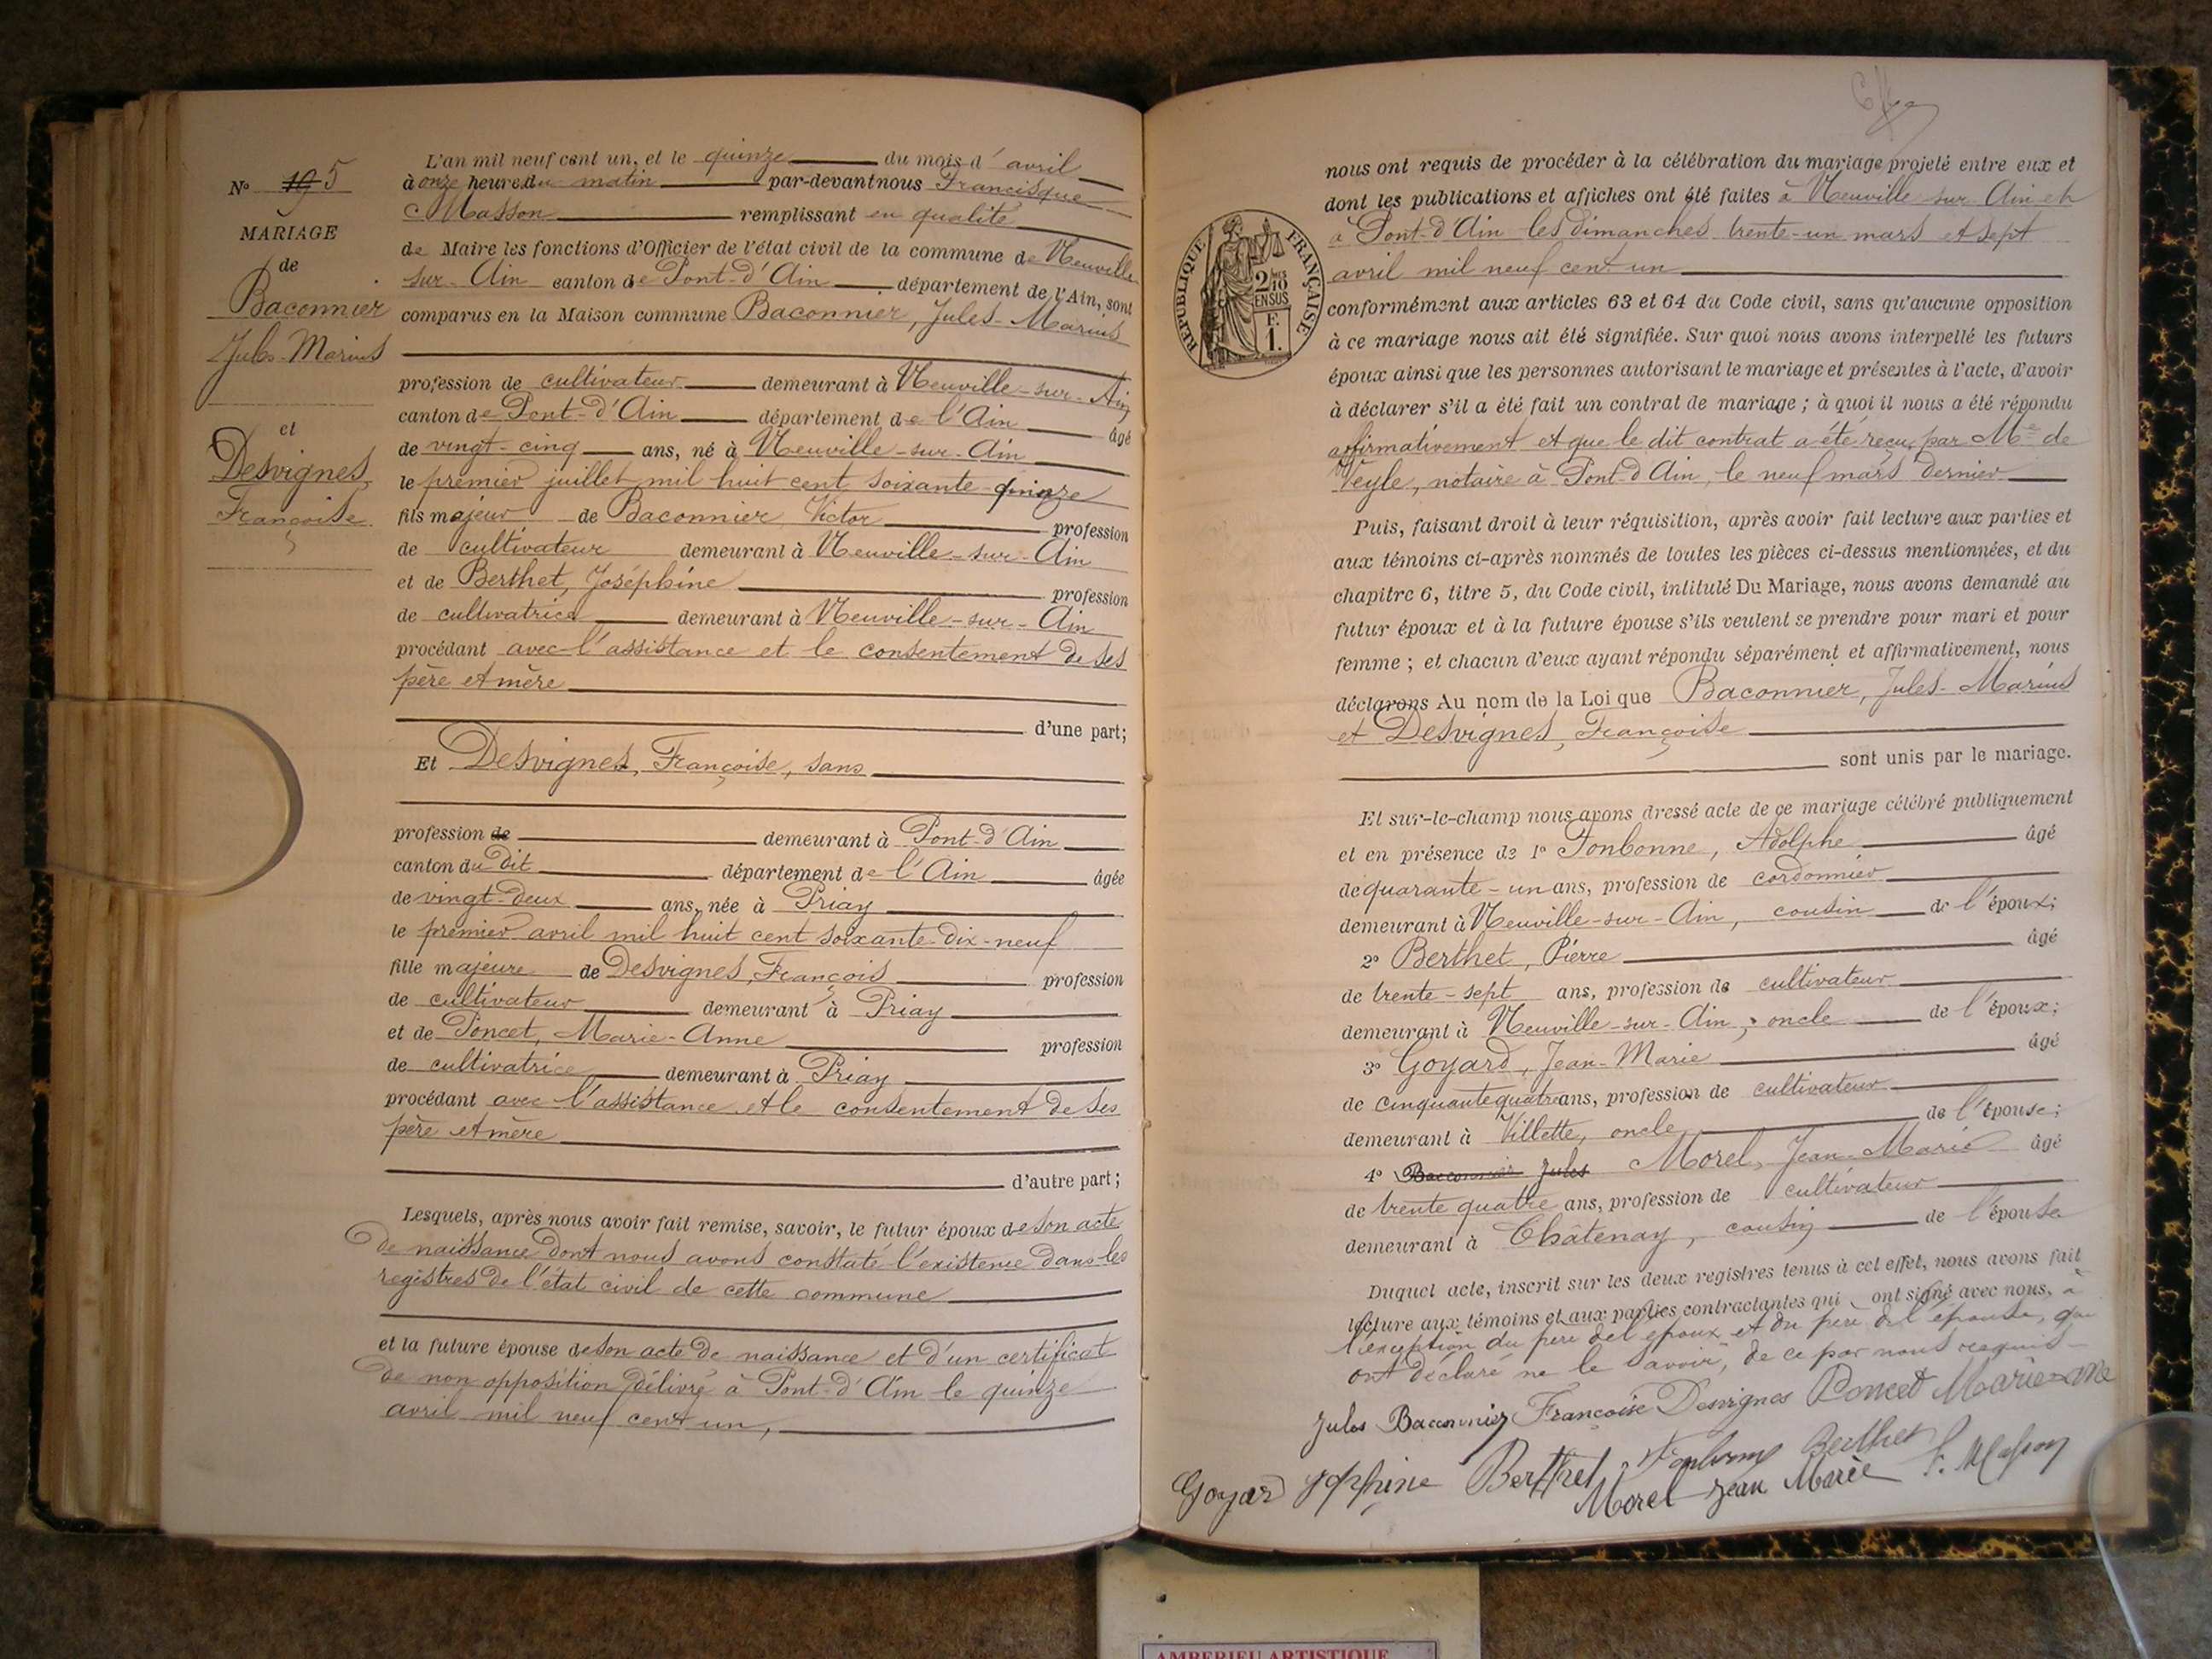 N° 19 5
MARIAGE
de
Baconnier
Jules-Marius
et
Desvignes,
Françoise
L'an mil neuf cent un, et le quinze du mois d'avril
à onze heures du matin par-devant nous Francisque
Masson remplissant en qualité
de Maire les fonctions d'Officier de l'état civil de la commune de Neuville
sur-Ain canton de Pont-d'Ain département de l'Ain, sont
comparus en la Maison commune Baconnier, Jules-Marius
profession de cultivateur demeurant à Neuville-sur-Ain
canton de Pont-d'Ain département de l'Ain âgé
de vingt-cinq ans, né à Neuville-sur-Ain
le premier juillet mil huit cent soixante-quinze
fils majeur de Baconnier, Victor profession
de cultivateur demeurant à Neuville-sur-Ain
et de Berthet, Joséphine profession
de cultivatrice demeurant à Neuville-sur-Ain
procédant avec l'assistance et le consentement de ses
père et mère
d'une part;
Et Desvignes, Françoise, sans
profession de demeurant à Pont-d'Ain
canton du dit département de l'Ain âgée
de vingt-deux ans, née à Priay
le premier avril mil huit cent soixante-dix-neuf
fille majeure de Desvignes, François profession
de cultivateur demeurant à Priay
et de Poncet, Marie-Anne profession
de cultivatrice demeurant à Priay
procédant avec l'assistance et le consentement de ses
père et mère
d'autre part;
Lesquels, après nous avoir fait remise, savoir, le futur époux de son acte
de naissance dont nous avons constaté l'existence dans les
registres de l'état civil de cette commune
et la future épouse de son acte de naissance et d'un certificat
de non opposition délivré à Pont-d'Ain le quinze
avril mil neuf cent un,
nous ont requis de procéder à la célébration du mariage projeté entre eux et
dont les publications et affiches ont été faites à Neuville sur Ain et
à Pont-d'Ain les dimanches trente-un mars et sept
avril mil neuf cent un
RÉPUBLIQUE FRANÇAISE
2/10
EN SUS
F.
1.
conformément aux articles 63 et 64 du Code civil, sans qu'aucune opposition
à ce mariage nous ait été signifiée. Sur quoi nous avons interpellé les futurs
époux ainsi que les personnes autorisant le mariage et présentes à l'acte, d'avoir
à déclarer s'il a été fait un contrat de mariage ; à quoi il nous a été répondu
affirmativement et que le dit contrat a été reçu par Me de
Veyle, notaire à Pont-d'Ain, le neuf mars dernier
Puis, faisant droit à leur réquisition, après avoir fait lecture aux parties et
aux témoins ci-après nommés de toutes les pièces ci-dessus mentionnées, et du
chapitre 6, titre 5, du Code civil, intitulé Du Mariage, nous avons demandé au
futur époux et à la future épouse s'ils veulent se prendre pour mari et pour
femme ; et chacun d'eux ayant répondu séparément et affirmativement, nous
déclarons Au nom de la Loi que Baconnier, Jules-Marius
et Desvignes, Françoise
sont unis par le mariage.
Et sur-le-champ nous avons dressé acte de ce mariage célébré publiquement
et en présence de 1° Fonbonne, Adolphe âgé
de quarante-un ans, profession de cordonnier
demeurant à Neuville-sur-Ain, cousin de l'époux;
2° Berthet, Pierre âgé
de trente-sept ans, profession de cultivateur
demeurant à Neuville-sur-Ain, oncle de l'époux;
3° Goyard, Jean-Marie âgé
de cinquante quatre ans, profession de cultivateur
demeurant à Villette, oncle de l'épouse;
4° Baconnier Jules Morel, Jean-Marie âgé
de trente quatre ans, profession de cultivateur
demeurant à Châtenay, cousin de l'épouse
Duquel acte, inscrit sur les deux registres tenus à cet effet, nous avons fait
lecture aux témoins et aux parties contractantes qui ont signé avec nous, à
l'exception du père de l'époux et du père de l'épouse, qui
ont déclaré ne le savoir, de ce par nous requis
Jules Baconnier Françoise Desvignes Poncet Marie-Ane
Goyard Josphine Berthet Fonbonne Berthet
Morel Jean Marie F. Masson
AMBERIEU ARTISTIQUE